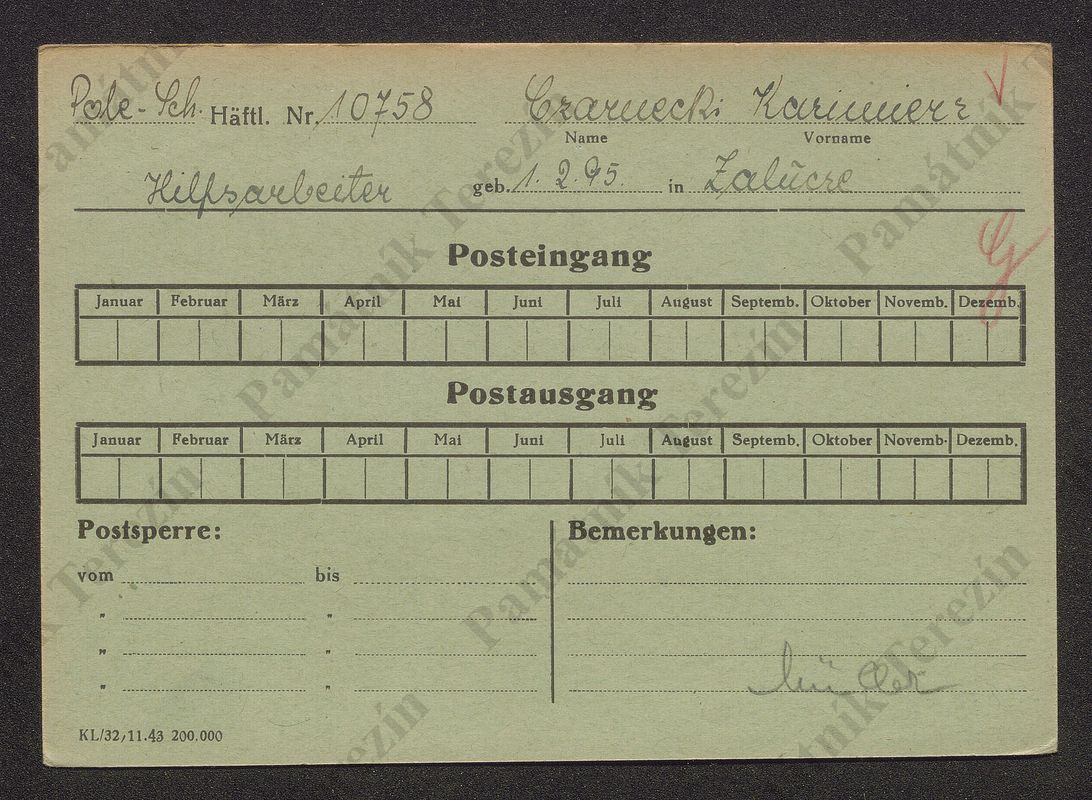 Pole-Sch. Häftl. Nr. 10758 Czarnecki Kazimierz
Name Vorname
Hilfsarbeiter geb. 1. 2. 95. in
Posteingang
Januar Februar März April Mai Juni Juli August Septemb. Oktober Novemb. Dezemb.
Postausgang
Januar Februar März April Mai Juni Juli August Septemb. Oktober Novemb. Dezemb.
Postsperre: Bemerkungen:
vom bis
" "
" "
" "
KL/32, 11.43 200.000
Památník Terezín
Památník Terezín
Památník Terezín
Památník Terezín